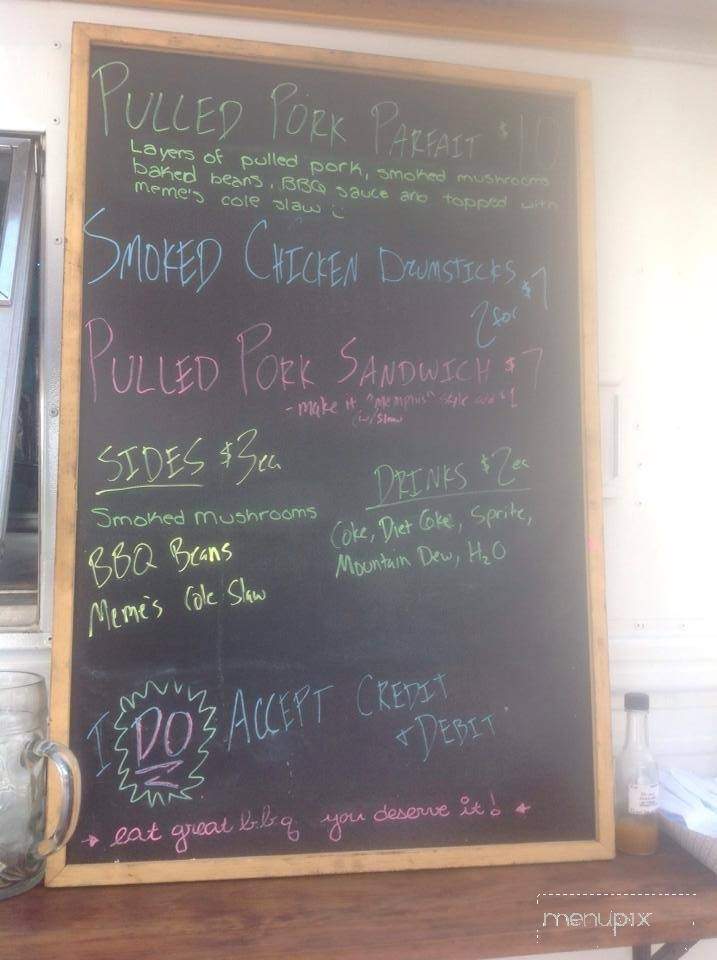 PULLED PORK PARFAIT $10
Layers of pulled pork, smoked mushrooms
baked beans, BBQ sauce and topped with
meme's cole slaw
SMOKED CHICKEN DRUMSTICKS
2 for $7
PULLED PORK SANDWICH $7
- make it "memphis" style add $1
w/slaw
SIDES $3ea
Smoked mushrooms
BBQ Beans
Meme's Cole Slaw
DRINKS $2ea
Coke, Diet Coke, Sprite,
Mountain Dew, H2O
I DO ACCEPT CREDIT
+ DEBIT
eat great b.b.q you deserve it!
menupix